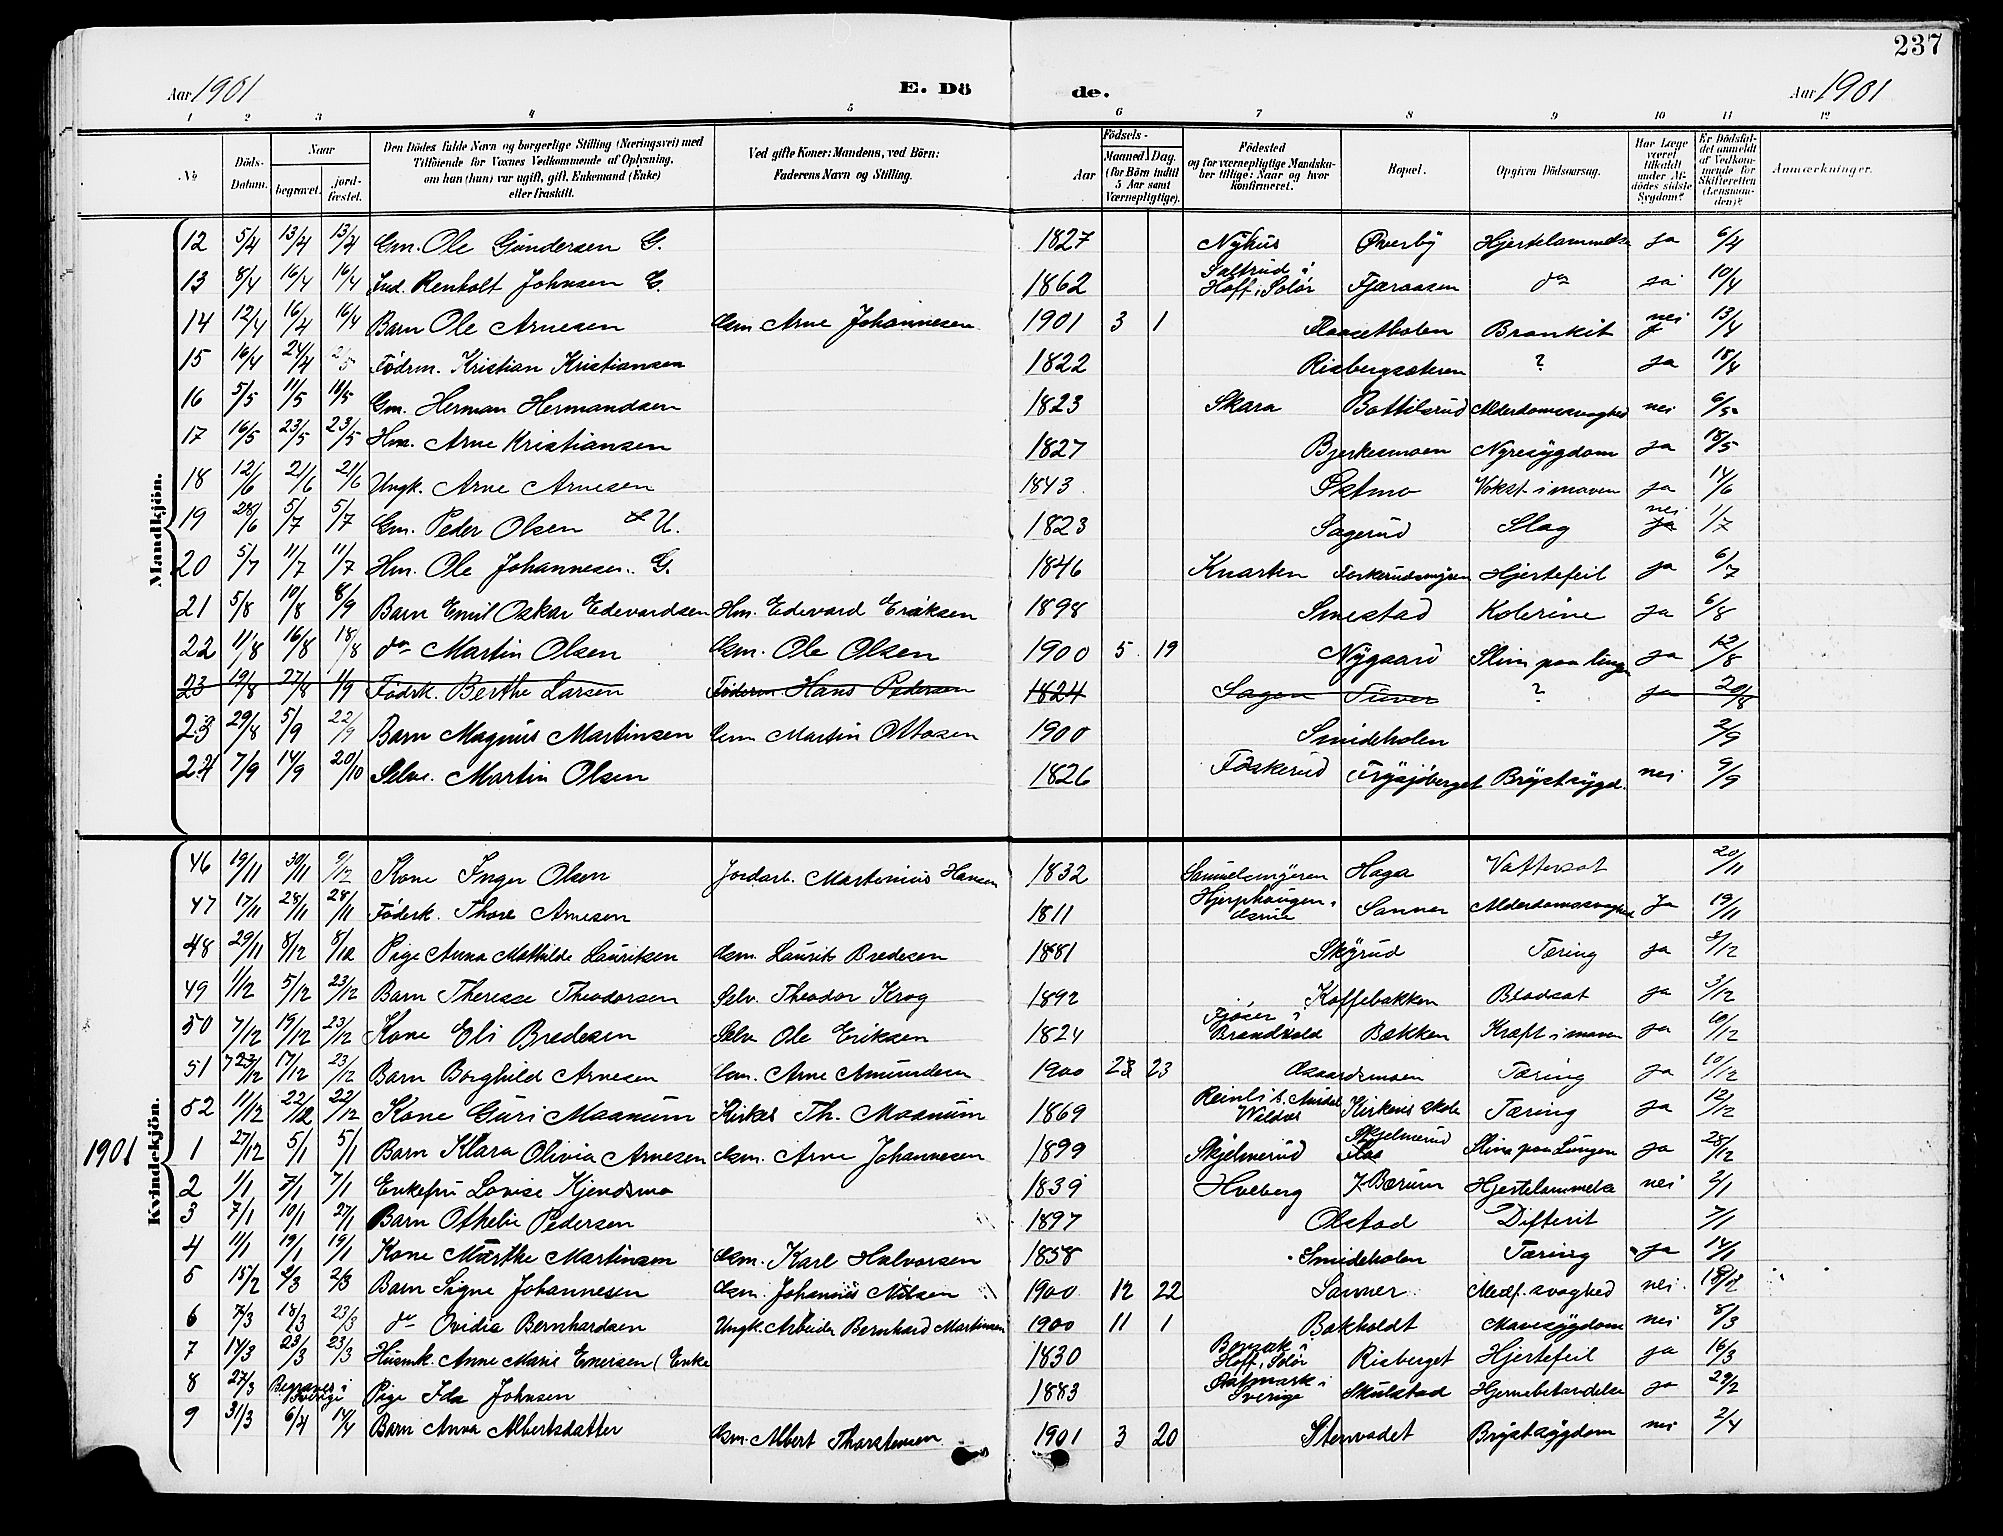 237
Aar 1901 E. Dö de. Aar 1901
1 2 3 4 5 6 7 8 9 10 11 12
No Döds-Datum. Naar begravet. jord-fæstet. Den Dödes fulde Navn og borgerlige Stilling (Næringsvei) med Tilföiende for Voxnes Vedkommende af Oplysning, om han (hun) var ugift, gift, Enkemand (Enke) eller fraskilt. Ved gifte Koner: Mandens, ved Börn: Faderens Navn og Stilling. Födsels- Aar Maaned Dag. (for Börn indtil 5 Aar samt Værnepligtige). Födested og for værnepligtige Mandskaber tillige: Naar og hvor konfirmeret. Bopæl. Opgiven Dödsaarsag. Har Læge været tilkaldt under Afdödes sidste Sygdom? Er Dödsfaldet anmeldt af Vedkommende for Skifteretten (Lensmanden)? Anmærkninger.
Mandkjön.
12 5/4 13/4 13/4 Gm. Ole Gundersen G. 1827 Nyhus Överby Hjertelammelse ja 6/4
13 8/4 16/4 16/4 Ind. Renholt Johnsen G. 1862 Saltrud i Hoff, Solör Fjæraasen do ja 10/4
14 12/4 16/4 16/4 Barn Ole Arnesen Gsm. Arne Johannesen 1901 3 1 Flaaetholen Bronkit nei 13/4
15 16/4 24/4 2/5 Födrm. Kristian Kristiansen 1822 Risbergsæteren ? ja 18/4
16 5/5 11/5 19/5 Gm. Herman Hermandsen 1823 Skara Bottilsrud Alderdomssvaghed nei 6/5
17 16/5 23/5 23/5 Hm. Arne Kristiansen 1827 Bjerkesmoen Nyresygdom ja 18/5
18 12/6 21/6 21/6 Ungk. Arne Arnesen 1843 Sætmo Vokst i maven ja 14/6
19 28/6 5/7 5/7 Gm. Peder Olsen U. 1823 Sagerud Slag nei ja 1/7
20 5/7 11/7 11/7 Hm. Ole Johannesen G. 1846 Knarten Foskerudsmyren Hjertefeil ja 6/7
21 5/8 10/8 8/9 Barn Emil Oskar Edevardsen Hm. Edevard Eriksen 1898 Smestad Kolerine ja 6/8
22 11/8 16/8 18/8 do Martin Olsen Gsm. Ole Olsen 1900 5 19 Nygaard Slim paa lunge ja 12/8
23 19/8 27/8 1/9 Födrk. Berthe Larsen Föderm Hans Pedersen 1824 Sagen Tuver ? ja 20/8
23 29/8 5/9 22/9 Barn Magnus Martinsen Gsm Martin Ottosen 1900 Smideholen 2/9
24 7/9 14/9 20/10 Selve. Martin Olsen 1826 Föskerud Frysjöberget Brystsygd. nei 9/9
1901 Kvindekjön.
46 19/11 30/11 9/12 Kone Inger Olsen Jordarb. Martinius Hansen 1832 Samuelsmyren Haga Vattersot 20/11
47 17/11 28/11 28/11 Föderk. Thore Arnesen 1811 Hjerphaugen, Sanner Alderdomssvaghed Ja 19/11
48 29/11 8/12 8/12 Pige Anna Mathilde Lauritsen Gsm. Laurits Bredesen 1881 Skyrud Tæring ja 3/12
49 1/12 5/12 23/12 Barn Theresse Theodorsen Selv. Theodor Krog 1892 Koffebakken Blodsot ja 3/12
50 7/12 19/12 23/12 Kone Eli Bredesen Selv Ole Eriksen 1824 Fjöser i Brandvold Bakken Kræft i maven ja 10/12
51 7/12 17/12 23/12 Barn Borghild Arnesen Gsm. Arne Amundsen 1900 23 Osaardsmoen Tæring ja 10/12
52 11/12 22/12 22/12 Kone Guri Maanum Kirkes. Th. Maanum 1869 Reinli s. Aurdal Valdres Kirkens skole Tæring ja 12/12
1 27/12 5/1 5/1 Barn Klara Olivia Arnesen Gsm. Arne Johannesen 1899 Skjelmerud Skjelmerud Flaa Slim paa Lungen ja 28/12
2 1/1 7/1 7/1 Enkefru Lovise Kjendsmo 1839 Hveberg V. Bærum Hjertelammelse nei 2/1
3 7/1 10/1 27/1 Barn Othelie Pedersen 1897 Olstad Difterit 7/1
4 11/1 19/1 19/1 Kone Marthe Martinsen Gsm. Karl Halvorsen 1858 Smideholen Tæring ja 14/1
5 15/2 2/3 2/3 Barn Signe Johannesen Gsm. Johannes Nilsen 1900 12 22 Sanner Medf. svaghed nei
6 7/3 18/3 23/3 do Ovidia Bernhardsen Ungk. Arbeider Bernhard Martinsen 1900 11 1 Bakholdt Mavesygdom nei 8/3
7 14/3 23/3 23/3 Husmk. Anne Marie Enersen (Enke 1830 Hoff, Solör Risberget Hjertefeil ja 16/3
8 27/3 Begraves i Sverige Pige Ida Johnsen 1883 Östmark i Sverige Skulstad Hjernebetændelse ja 29/2
9 31/3 6/4 14/4 Barn Anna Albertsdatter Gsm. Albert Thorstensen 1901 3 20 Stenvadet Brystsygdom nei 2/4